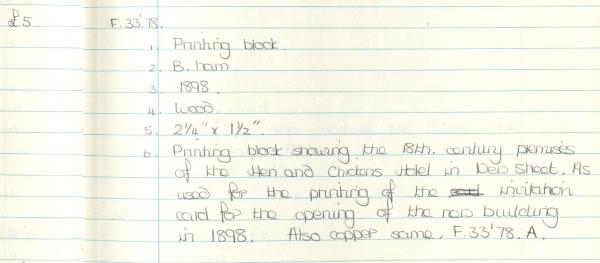 £5. F.33'78.
1. Printing block.
2. B.ham.
3. 1898.
4. Wood.
5. 2¼" x 1½".
6. Printing block showing the 18th. century premises
of the Hen and Chickens Hotel in New Street. As
used for the printing of the invitation
card for the opening of the new building
in 1898. Also copper same. F.33'78. A.